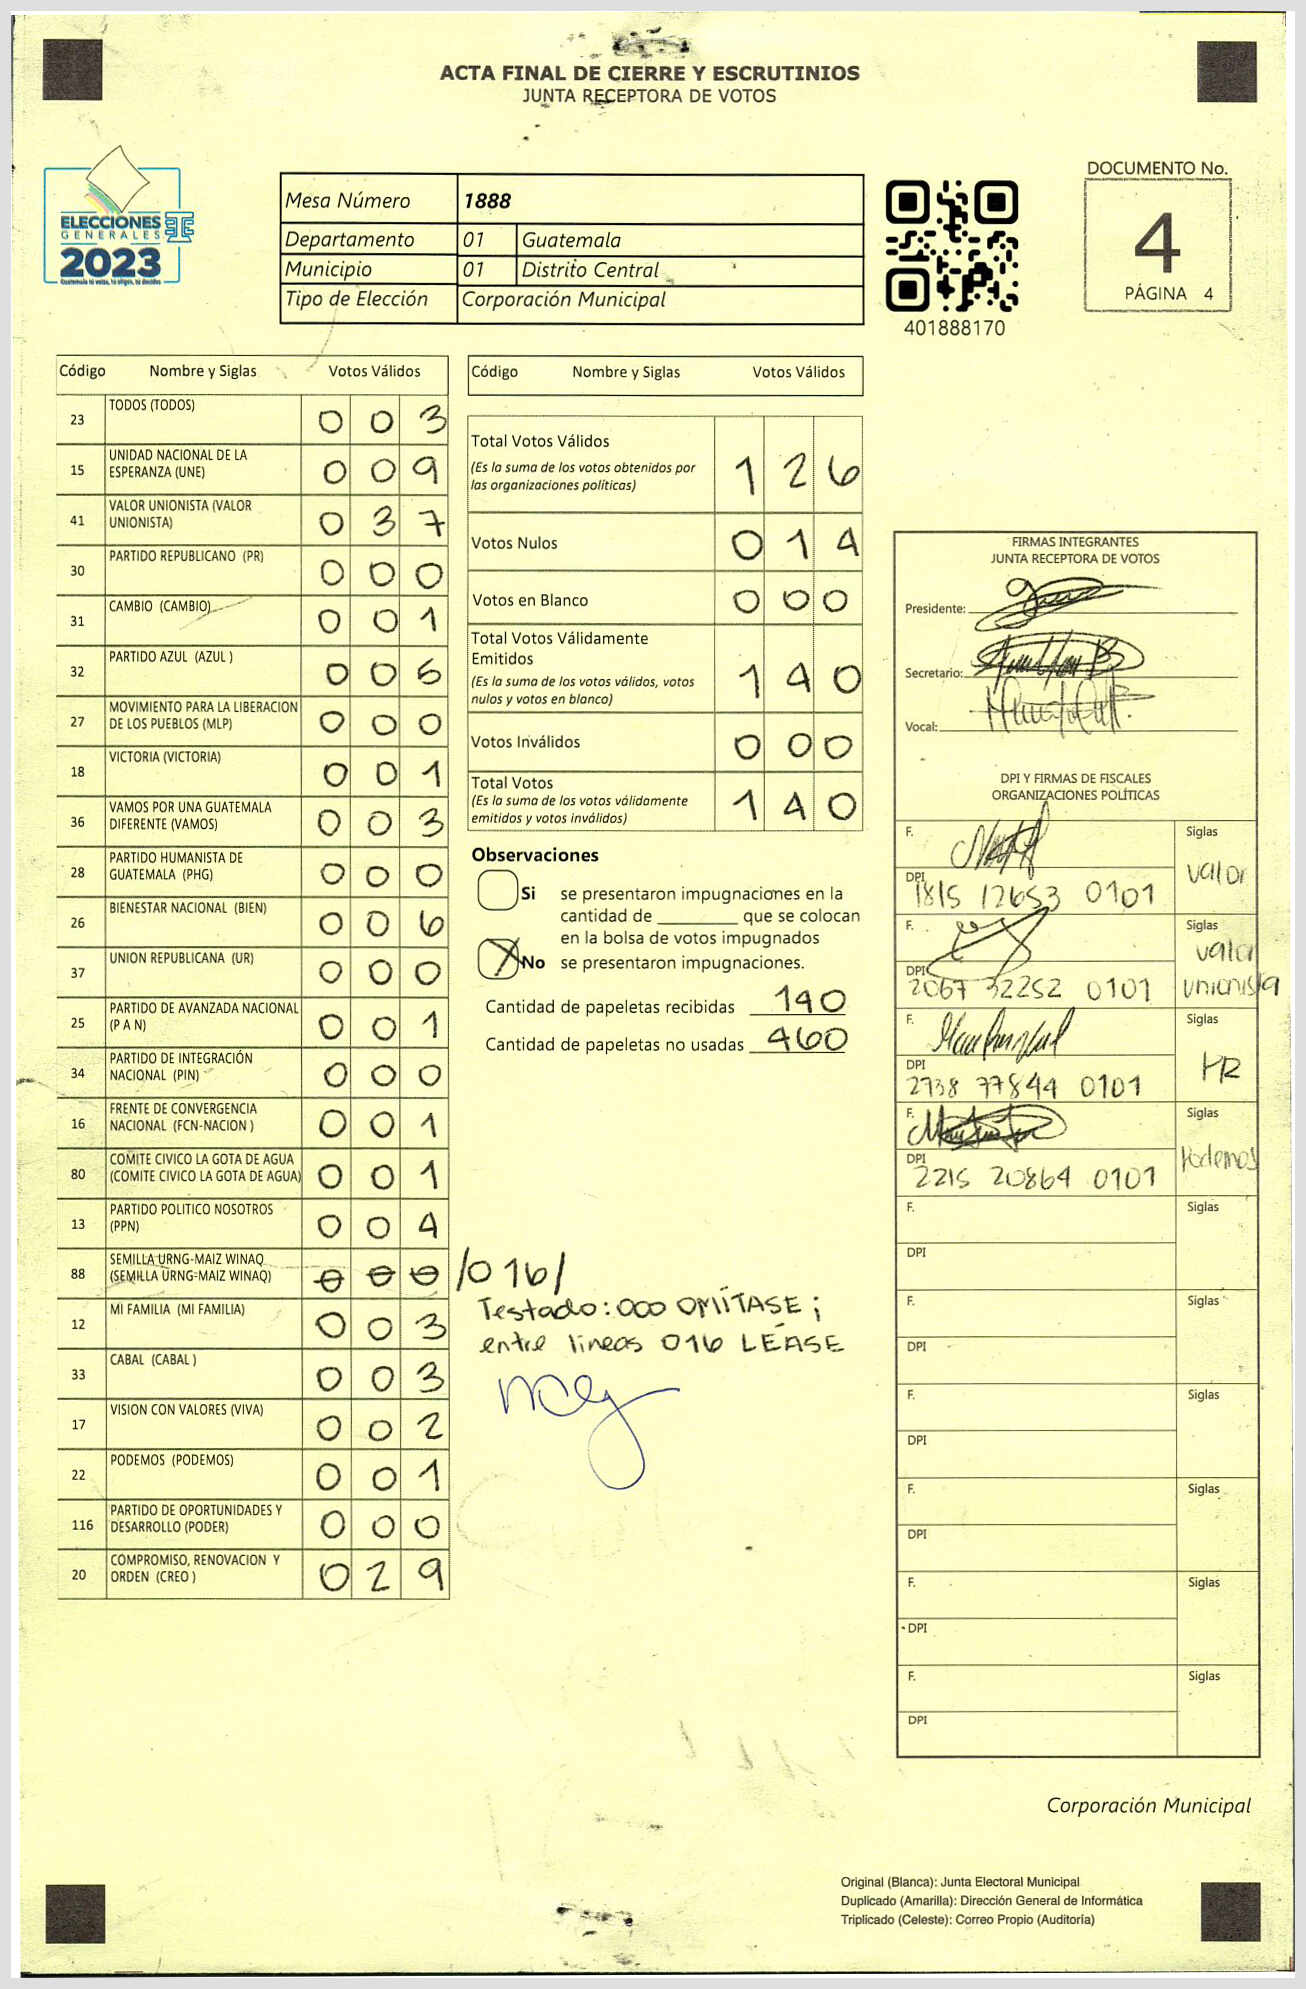 ACTA FINAL DE CIERRE Y ESCRUTINIOS
JUNTA RECEPTORA DE VOTOS
ELECCIONES
GENERALES
2023
Guatemala tú votas, tú eliges, tú decides
Mesa Número 1888
Departamento 01 Guatemala
Municipio 01 Distrito Central
Tipo de Elección Corporación Municipal
401888170
DOCUMENTO No.
4
PÁGINA 4
Código Nombre y Siglas Votos Válidos
23 TODOS (TODOS) 0 0 3
15 UNIDAD NACIONAL DE LA
ESPERANZA (UNE) 0 0 9
41 VALOR UNIONISTA (VALOR
UNIONISTA) 0 3 7
30 PARTIDO REPUBLICANO (PR) 0 0 0
31 CAMBIO (CAMBIO) 0 0 1
32 PARTIDO AZUL (AZUL ) 0 0 6
27 MOVIMIENTO PARA LA LIBERACION
DE LOS PUEBLOS (MLP) 0 0 0
18 VICTORIA (VICTORIA) 0 0 1
36 VAMOS POR UNA GUATEMALA
DIFERENTE (VAMOS) 0 0 3
28 PARTIDO HUMANISTA DE
GUATEMALA (PHG) 0 0 0
26 BIENESTAR NACIONAL (BIEN) 0 0 6
37 UNION REPUBLICANA (UR) 0 0 0
25 PARTIDO DE AVANZADA NACIONAL
(P A N) 0 0 1
34 PARTIDO DE INTEGRACIÓN
NACIONAL (PIN) 0 0 0
16 FRENTE DE CONVERGENCIA
NACIONAL (FCN-NACION ) 0 0 1
80 COMITE CIVICO LA GOTA DE AGUA
(COMITE CIVICO LA GOTA DE AGUA) 0 0 1
13 PARTIDO POLITICO NOSOTROS
(PPN) 0 0 4
88 SEMILLA URNG-MAIZ WINAQ
(SEMILLA URNG-MAIZ WINAQ) 0 0 0 /016/
12 MI FAMILIA (MI FAMILIA) 0 0 3
33 CABAL (CABAL ) 0 0 3
17 VISION CON VALORES (VIVA) 0 0 2
22 PODEMOS (PODEMOS) 0 0 1
116 PARTIDO DE OPORTUNIDADES Y
DESARROLLO (PODER) 0 0 0
20 COMPROMISO, RENOVACION Y
ORDEN (CREO ) 0 2 9
Código Nombre y Siglas Votos Válidos
Total Votos Válidos
(Es la suma de los votos obtenidos por
las organizaciones políticas) 1 2 6
Votos Nulos 0 1 4
Votos en Blanco 0 0 0
Total Votos Válidamente
Emitidos
(Es la suma de los votos válidos, votos
nulos y votos en blanco) 1 4 0
Votos Inválidos 0 0 0
Total Votos
(Es la suma de los votos válidamente
emitidos y votos inválidos) 1 4 0
Observaciones
Si se presentaron impugnaciones en la
cantidad de ________ que se colocan
en la bolsa de votos impugnados
No se presentaron impugnaciones.
Cantidad de papeletas recibidas 140
Cantidad de papeletas no usadas 460
Testado: 000 OMÍTASE ;
entre lineas 016 LÉASE
FIRMAS INTEGRANTES
JUNTA RECEPTORA DE VOTOS
Presidente:
Secretario:
Vocal:
DPI Y FIRMAS DE FISCALES
ORGANIZACIONES POLÍTICAS
F. Siglas
valor
DPI
1815 12653 0101
F. Siglas
valor
unionista
DPI
2067 32252 0101
F. Siglas
DPI
2738 77844 0101
F. Siglas
Podemos
DPI
2215 20864 0101
F. Siglas
DPI
F. Siglas
DPI
F. Siglas
DPI
F. Siglas
DPI
F. Siglas
DPI
F. Siglas
DPI
Corporación Municipal
Original (Blanca): Junta Electoral Municipal
Duplicado (Amarilla): Dirección General de Informática
Triplicado (Celeste): Correo Propio (Auditoría)